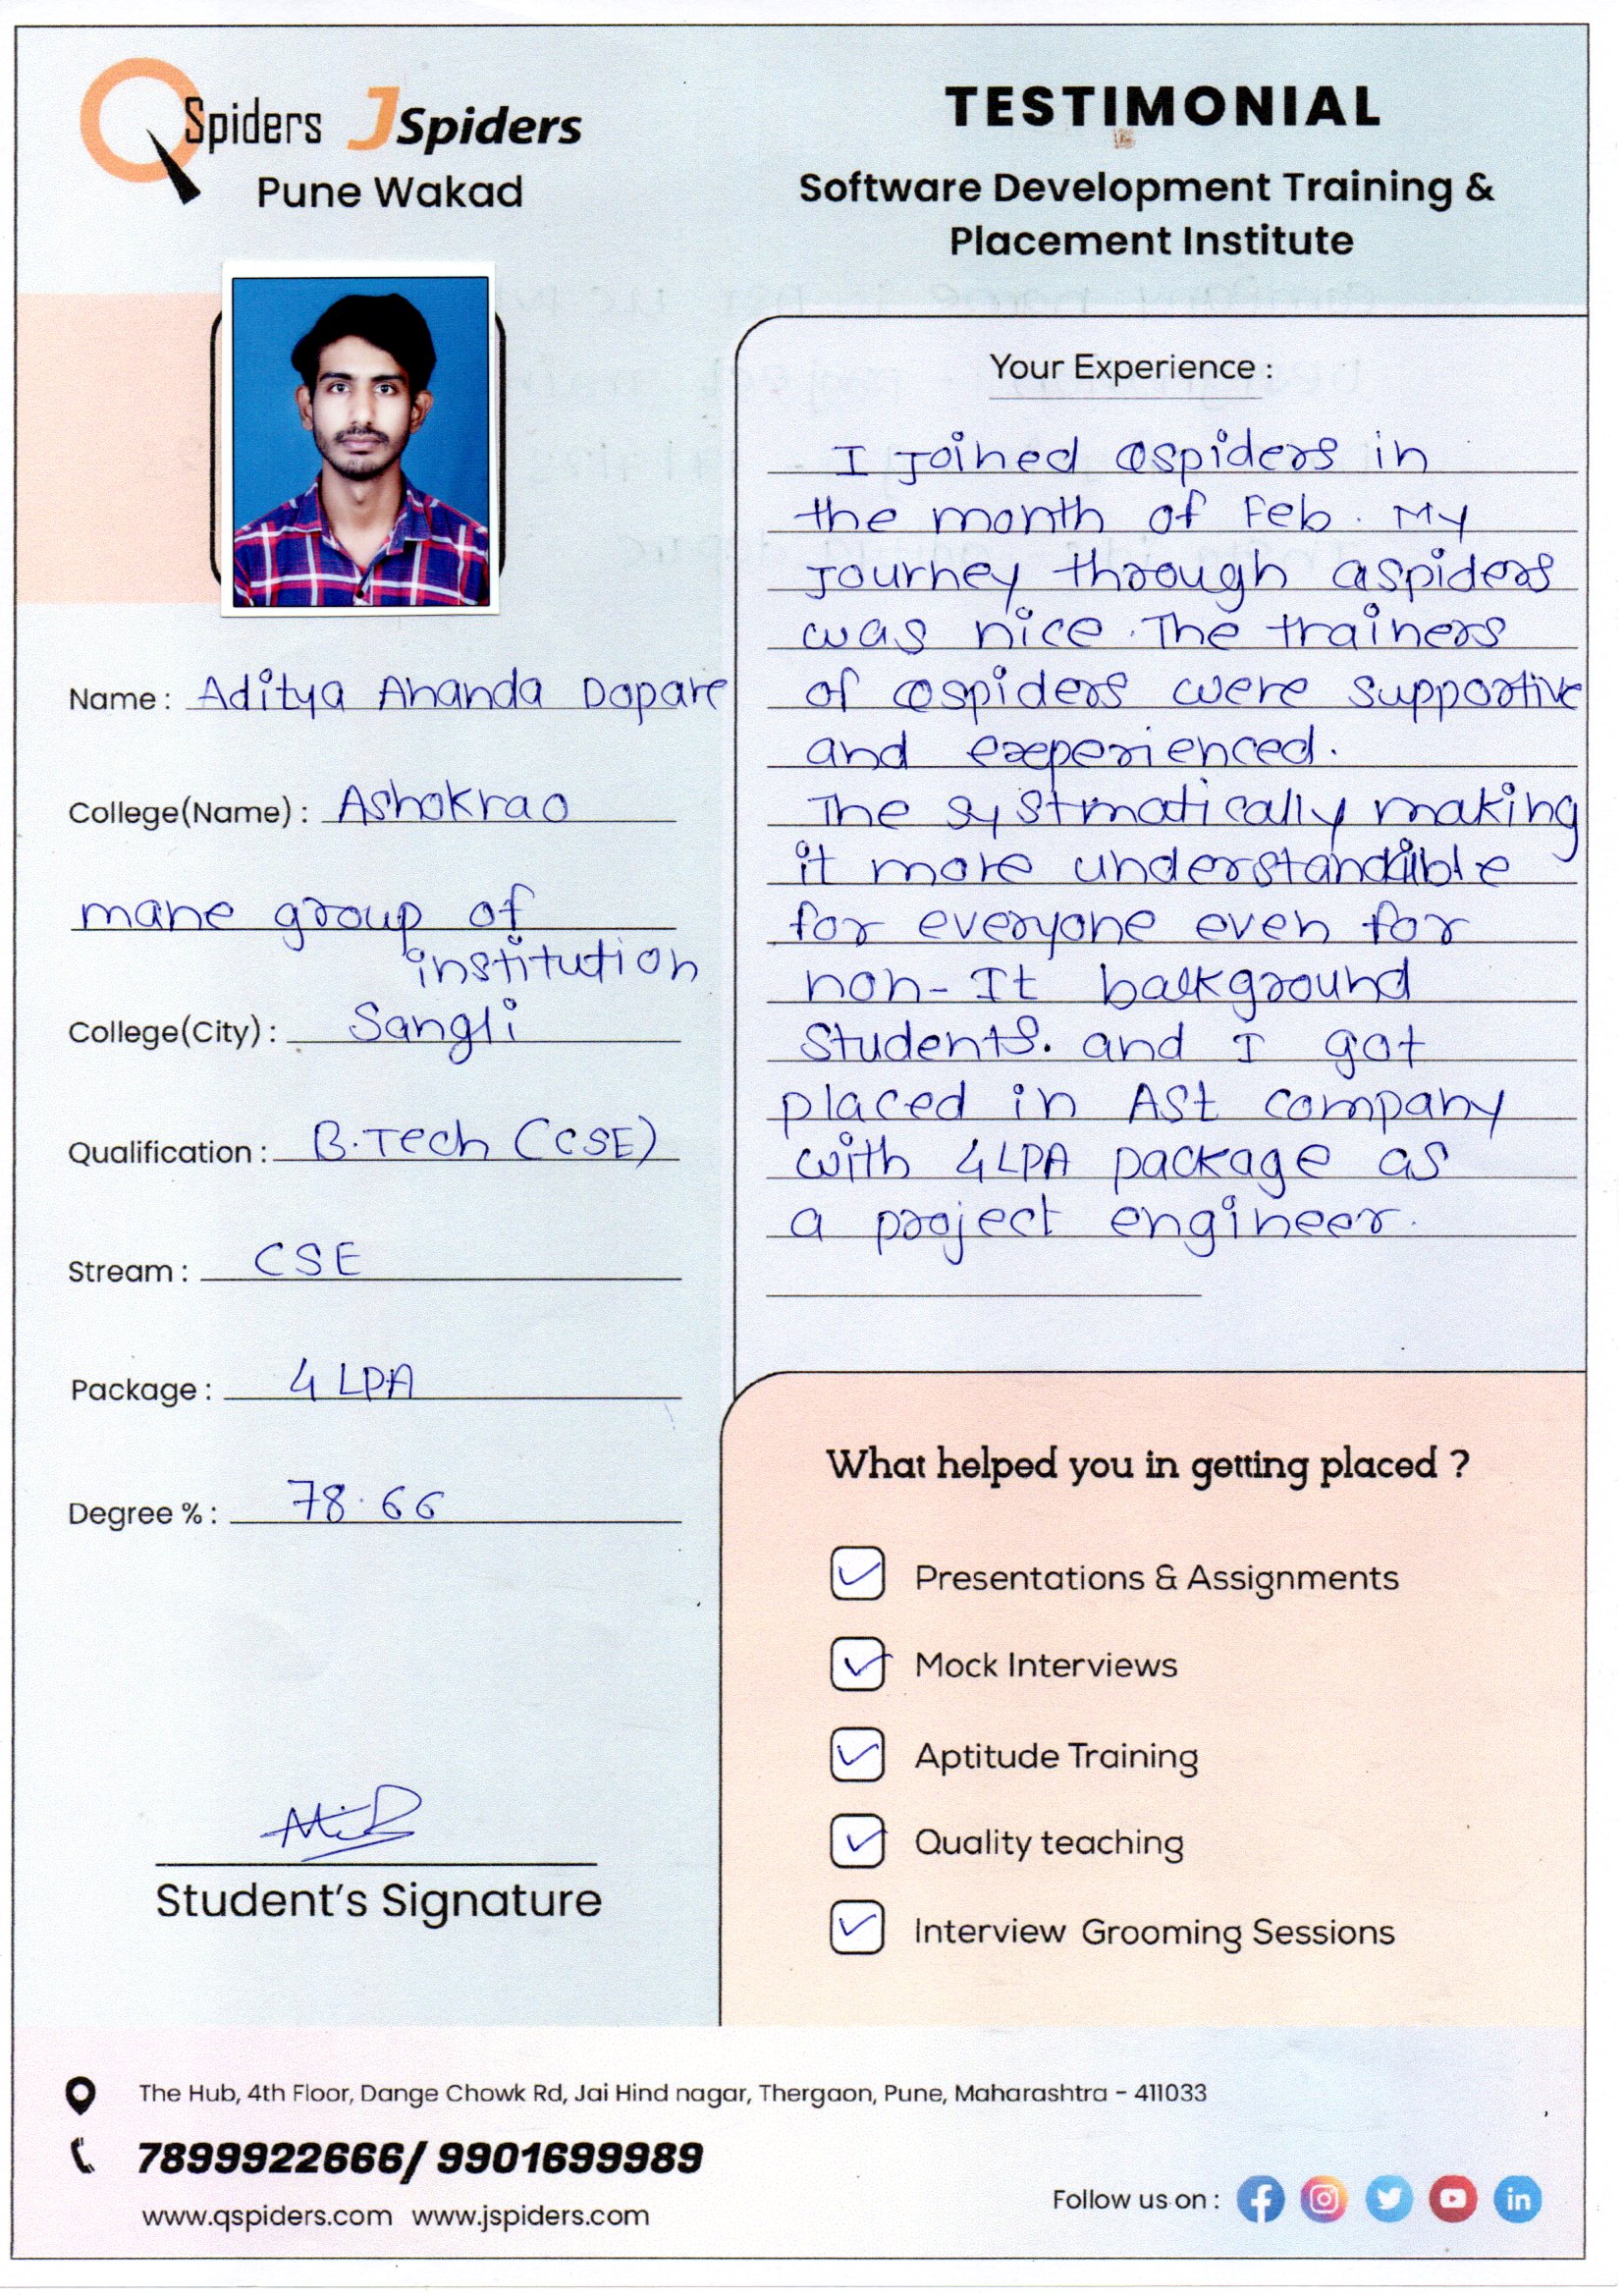 QSpiders JSpiders
Pune Wakad
TESTIMONIAL
Software Development Training &
Placement Institute
Name : Aditya Ananda Dopare
College(Name) : Ashokrao
mane group of
institution
College(City) : Sangli
Qualification : B.Tech (CSE)
Stream : CSE
Package : 4 LPA
Degree % : 78.66
Student's Signature
Your Experience :
I Joined Qspiders in
the month of Feb. My
Journey through Qspiders
was nice. The trainers
of Qspiders were supportive
and experienced.
The systmatically making
it more understandible
for everyone even for
non-It balkground
Students. and I got
placed in ASt company
with 4LPA package as
a project engineer.
What helped you in getting placed ?
Presentations & Assignments
Mock Interviews
Aptitude Training
Quality teaching
Interview Grooming Sessions
The Hub, 4th Floor, Dange Chowk Rd, Jai Hind nagar, Thergaon, Pune, Maharashtra - 411033
7899922666/ 9901699989
www.qspiders.com www.jspiders.com
Follow us on :